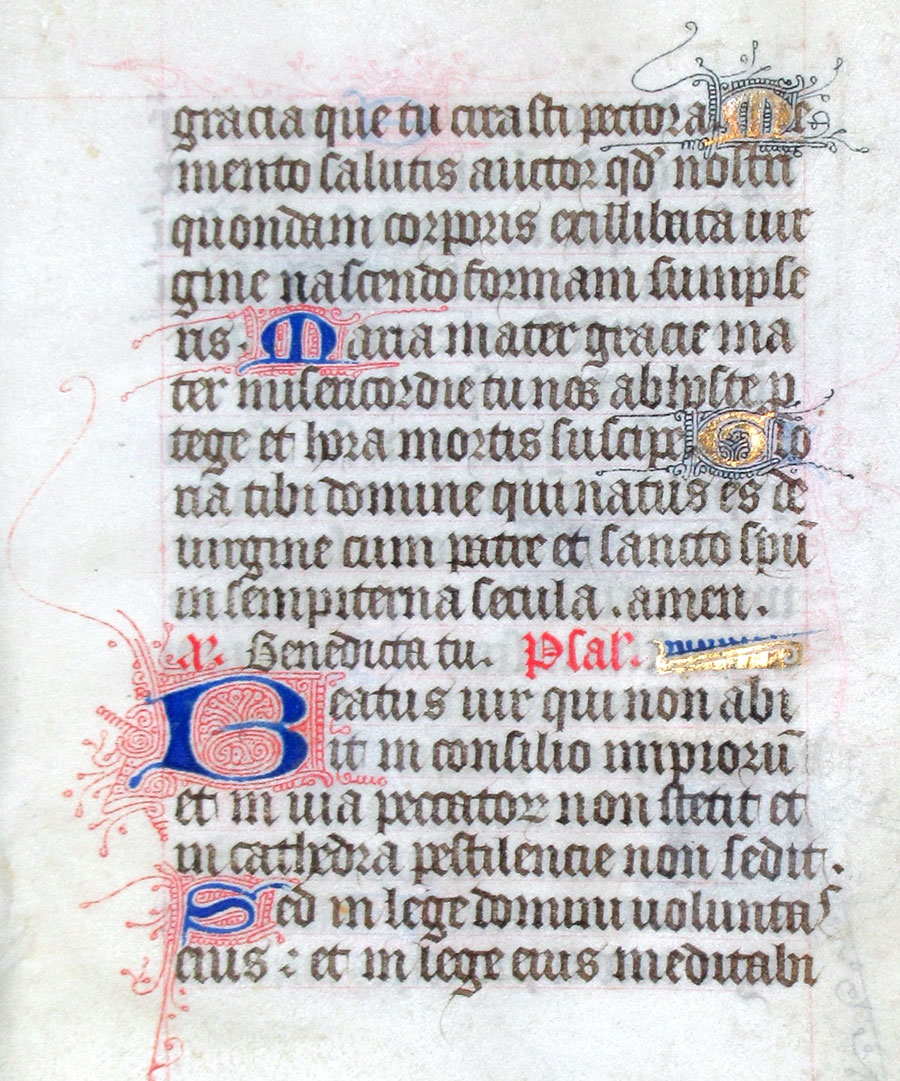 gracia que tu creasti pectora Me
mento salutis auctor qd' nostri
quondam corporis exillibata uir
gine nascendo formam sumpse
ris. Maria mater gracie ma
ter misericordie tu nos ab hoste p
tege et hora mortis suscipe Glo
ria tibi domine qui natus es de
uirgine cum patre et sancto spū
in sempiterna secula . amen .
Benedicta tu. Psal'.
Beatus uir qui non abi
it in consilio impiorū
et in uia peccatoꝝ non stetit et
in cathedra pestilencie non sedit.
Sed in lege domini uoluntas
eius : et in lege eius meditabi